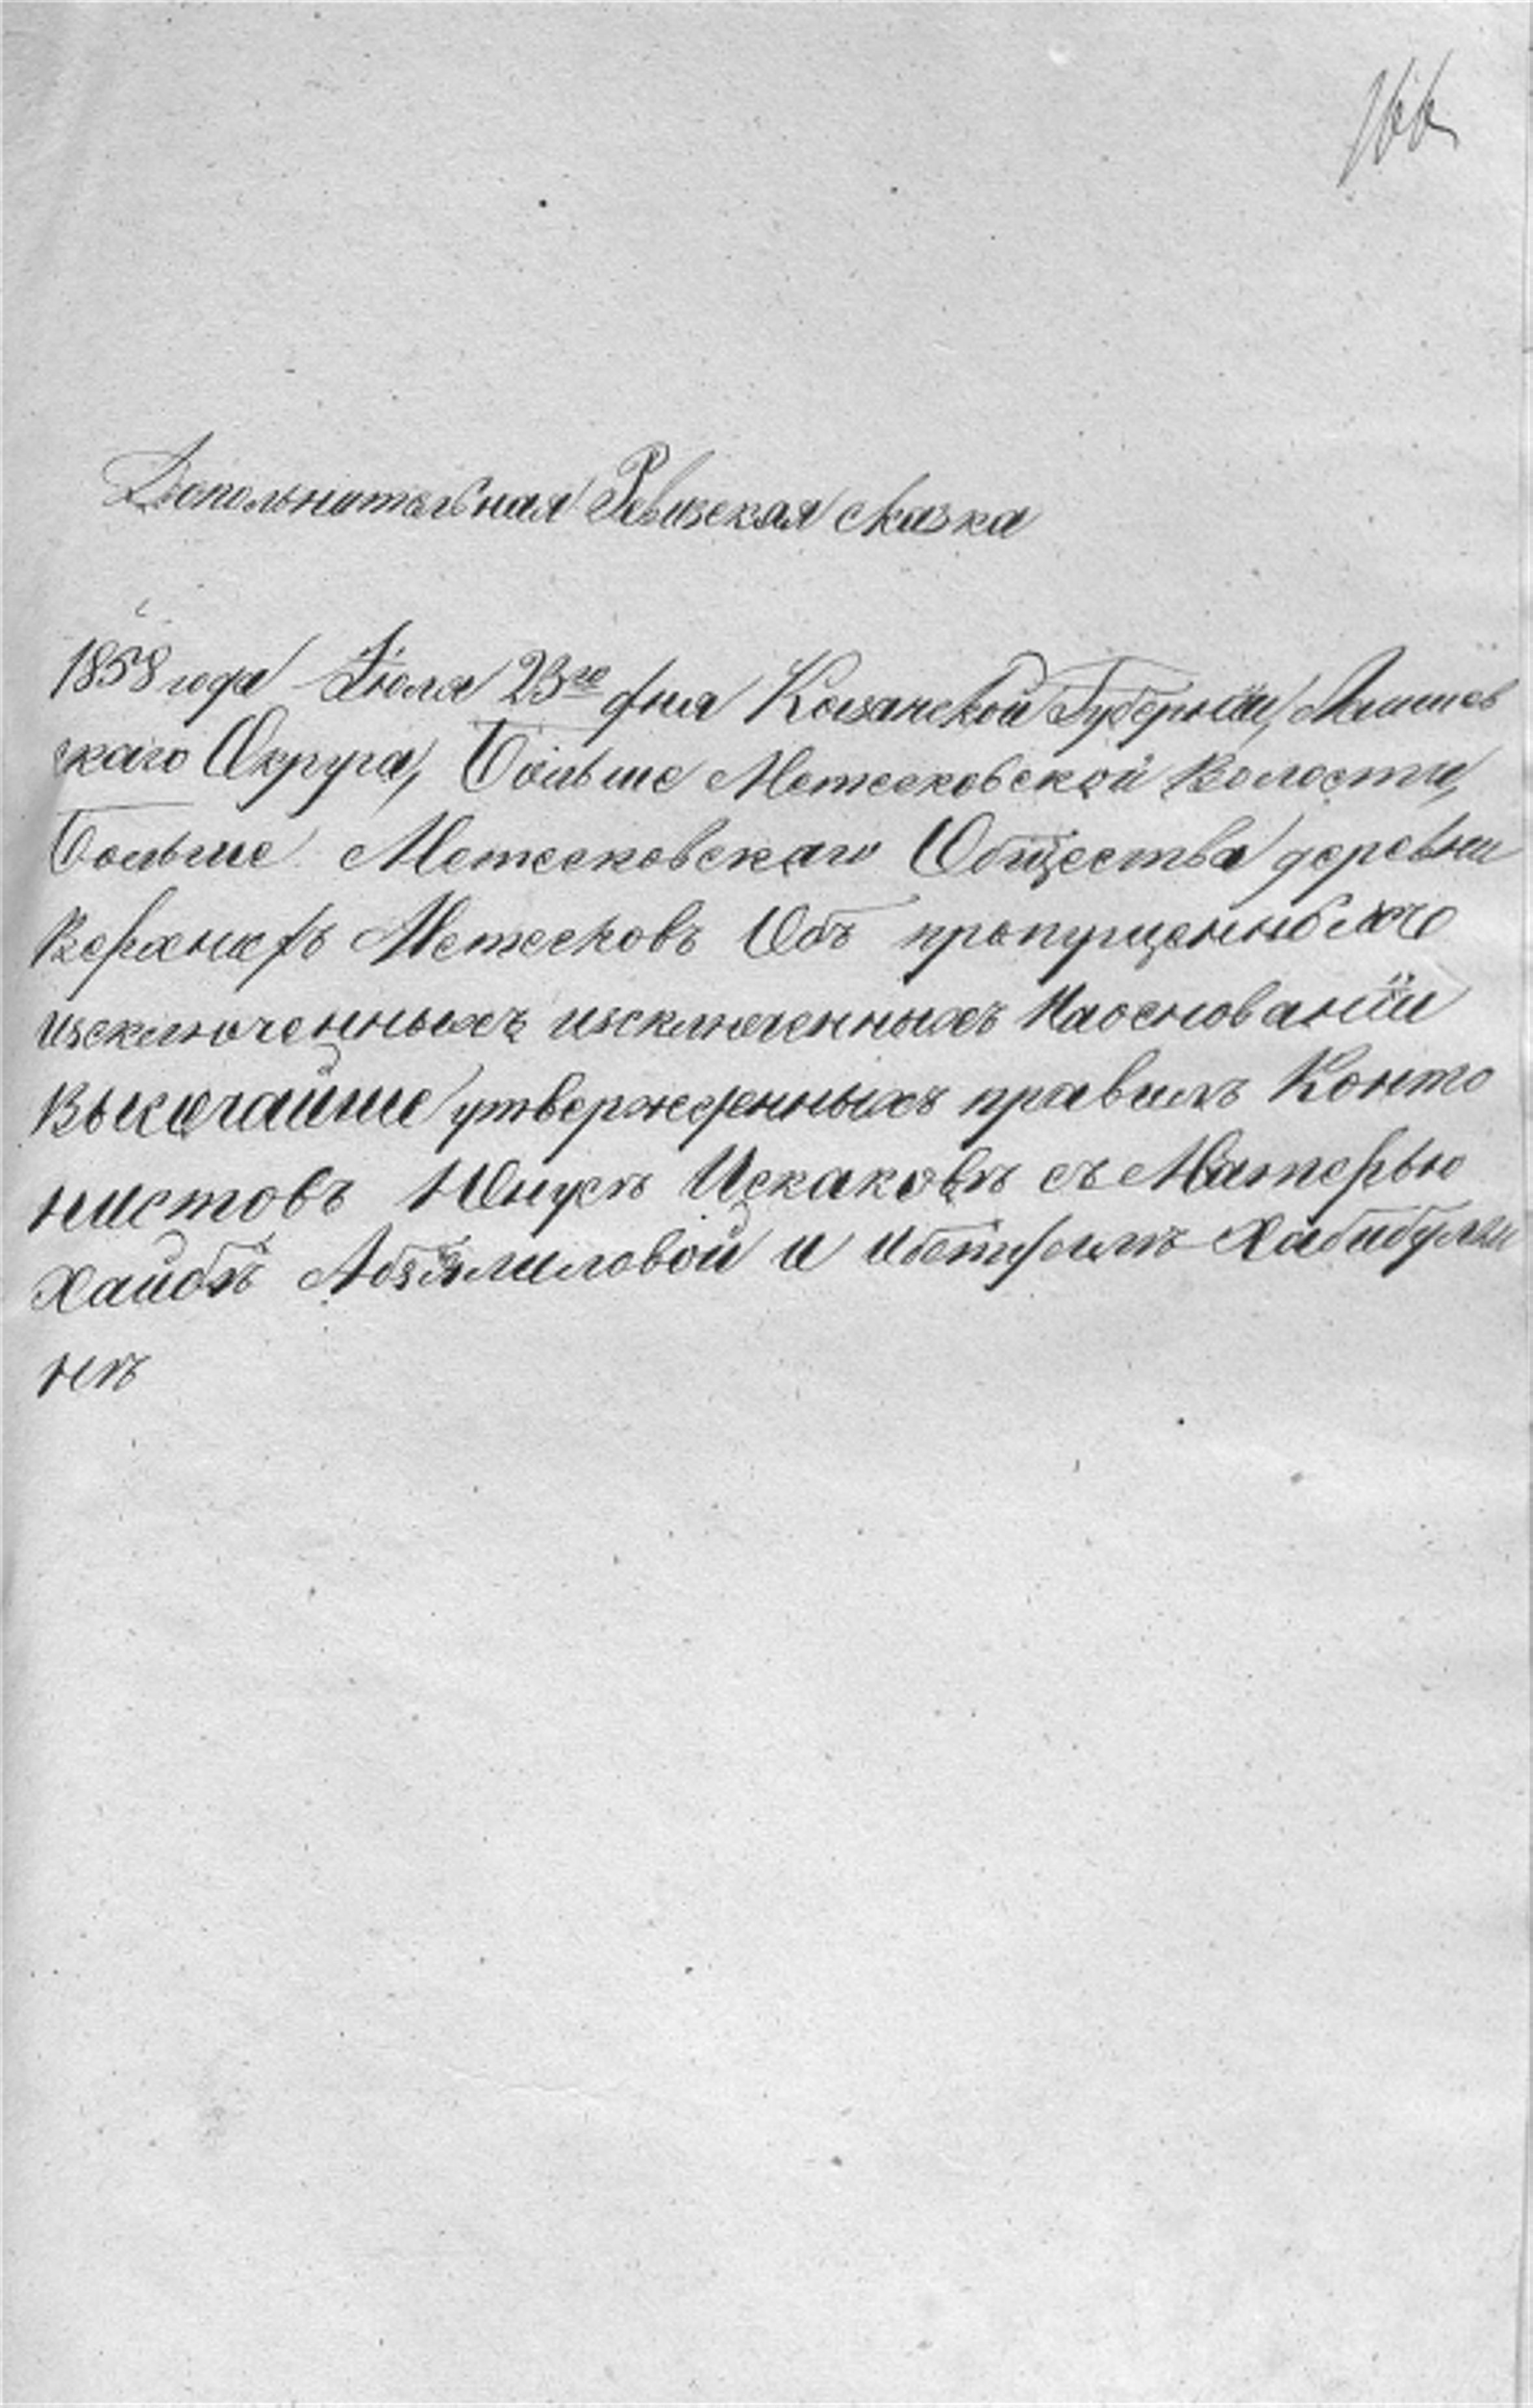 166
Допольнительная Ревизская сказка
1858 года Іюля 23го дня Казанской Губерніи, Лаишев
скаго Округа, Больше Метесковской Волости,
Больше Метесковскаго Общества деревни
Верхнихъ Метесковъ Объ пропущенныхъ
изключенныхъ изключенныхъ На основаніи
Высочайше утвержденныхъ правилъ Канто
нистовъ Юнусъ Искаковъ съ Матерью
Абзялиловой и Хабибулли
нъ